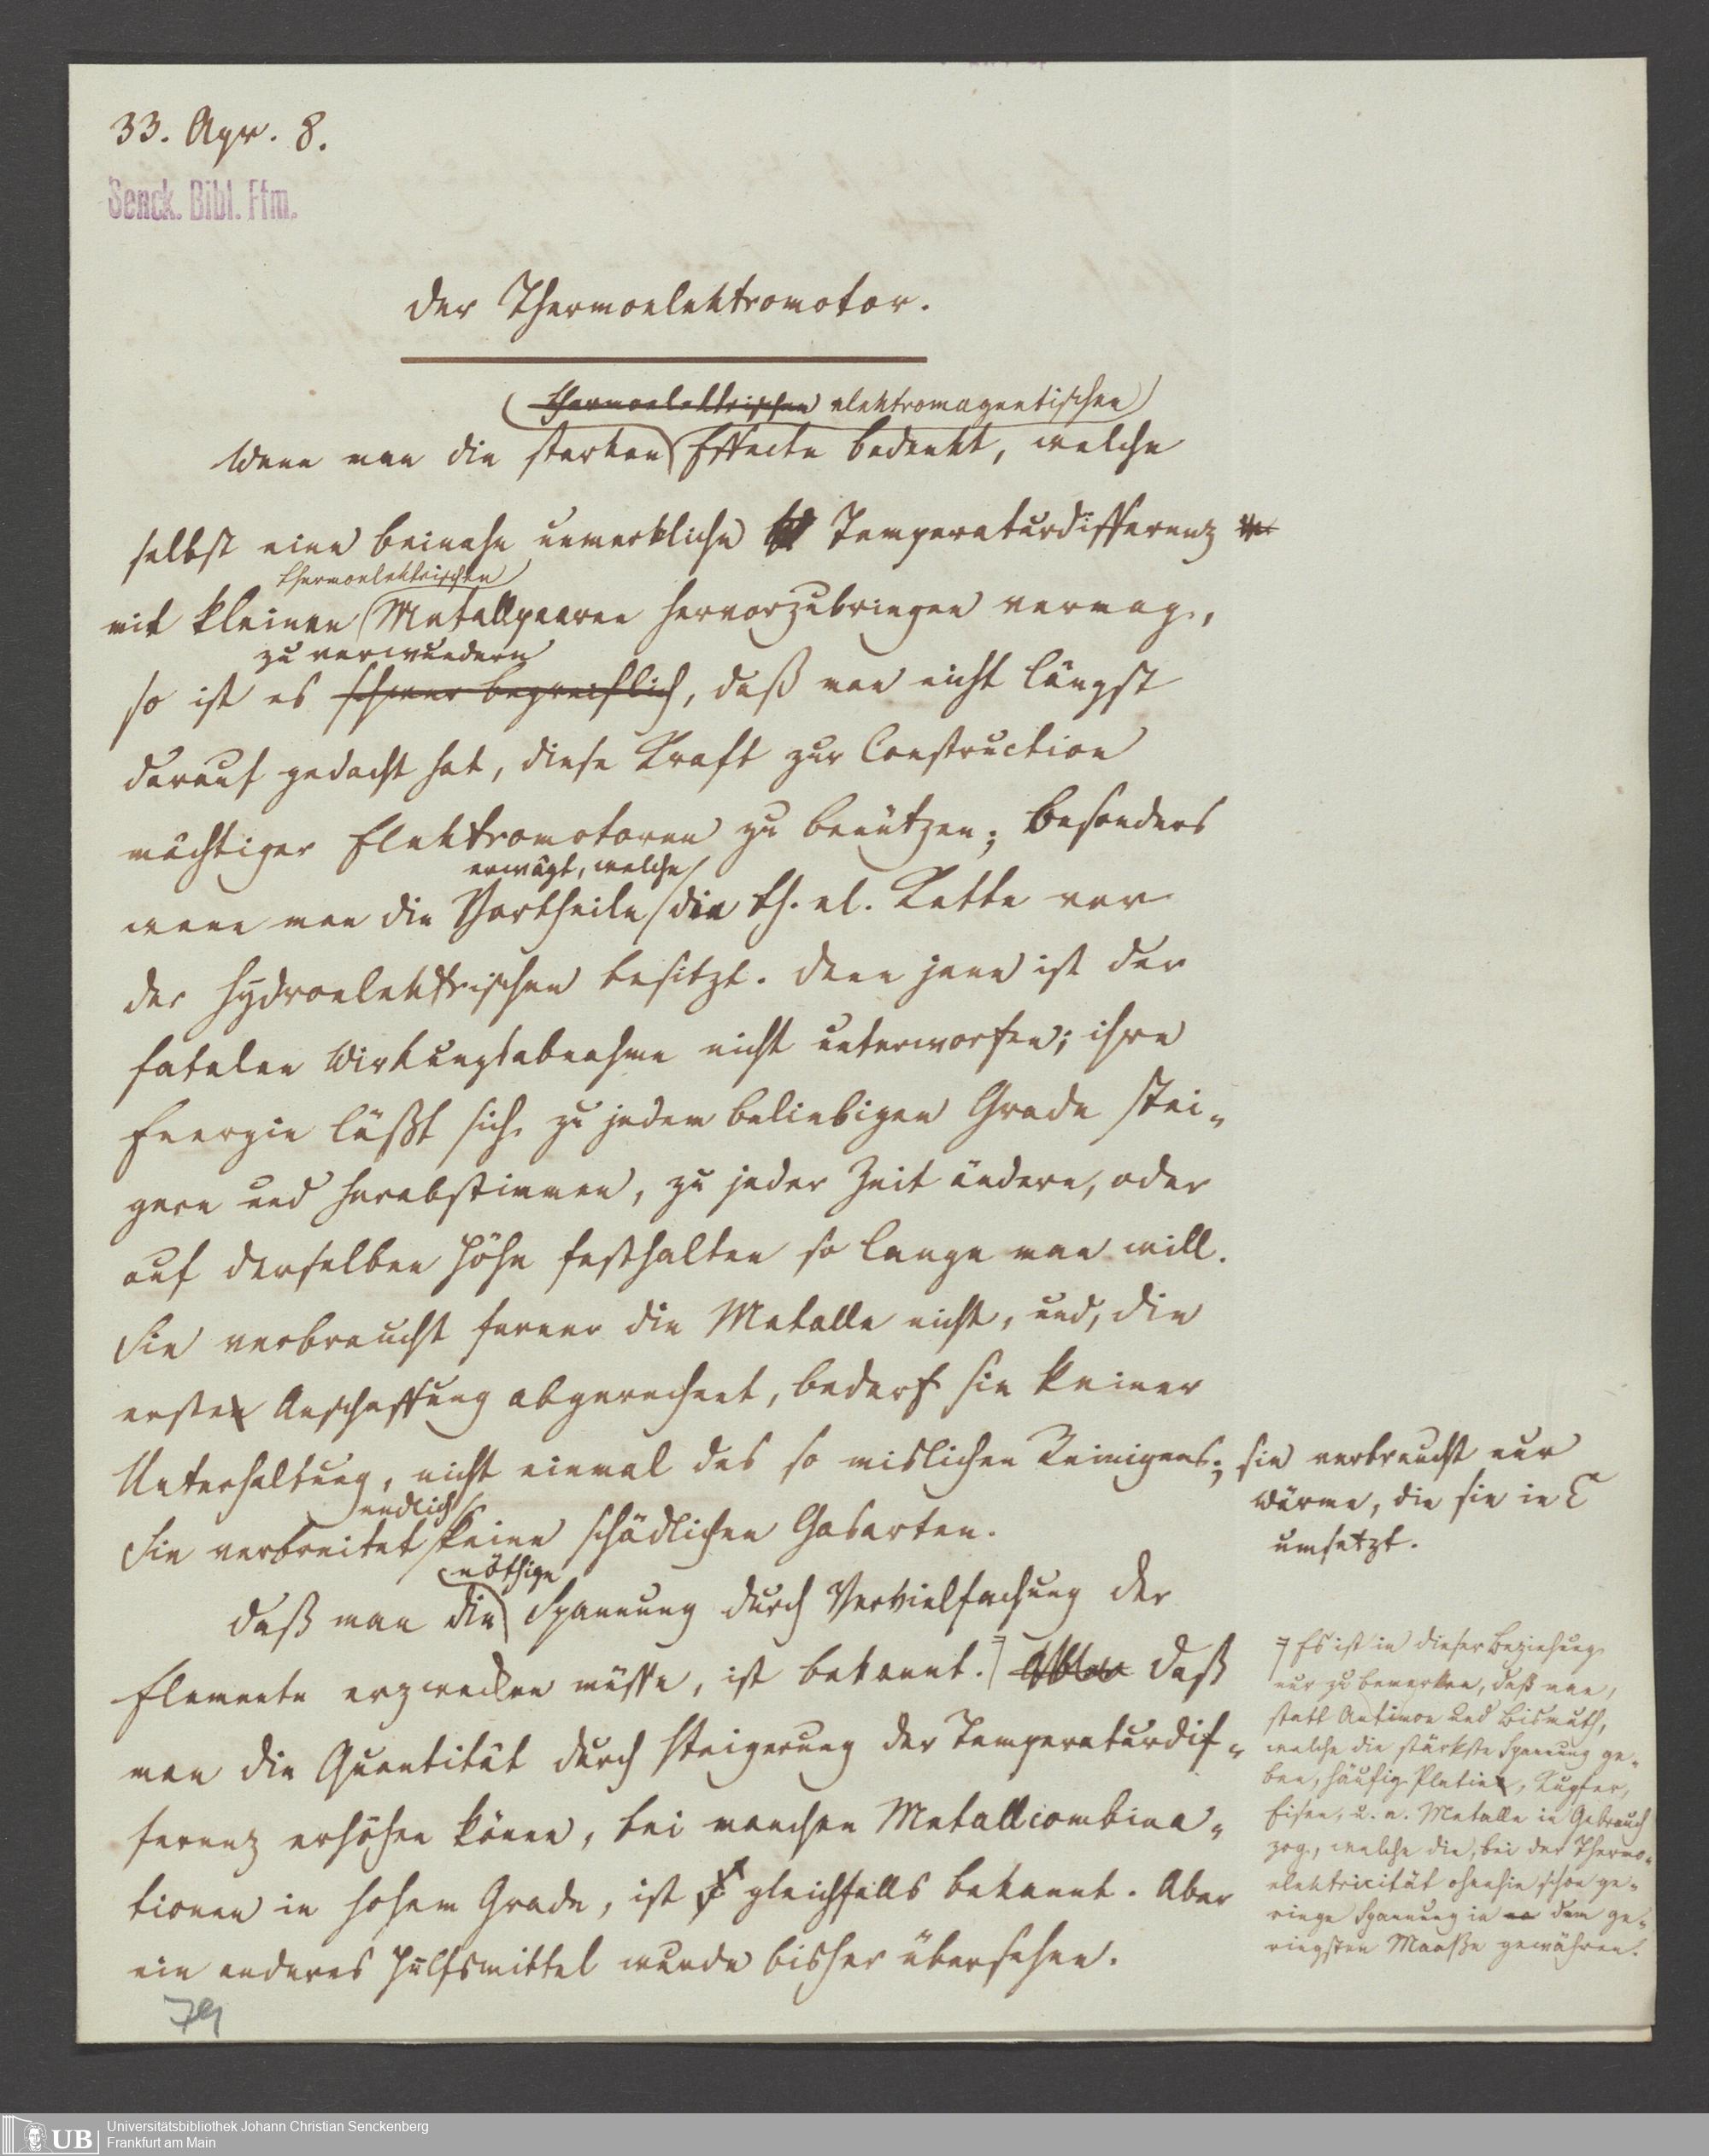 33. Apr. 8.
Senck. Bibl. Ffm.
Der Thermoelektromotor.
thermoelektrischen elektromagnetischen
Wenn man die starken Effecte bedenkt, welche
selbst eine beinahe unmerkliche Temperaturdifferenz
thermoelektrischen
mit kleinen Metallpaaren hervorzubringen vermag,
zu verwundern
so ist es schwer begreiflich, daß man nicht längst
darauf gedacht hat, diese Kraft zur Construction
mächtiger Elektromotoren zu benützen; besonders
erwägt, welche
wenn man die Vortheile die th. el. Kette vor
der hydroelektrischen besitzt. Denn jene ist der
fatalen Wirkungsabnahme nicht unterworfen; ihre
Energie läßt sich zu jedem beliebigen Grade stei-
gern und herabstimmen, zu jeder Zeit ändern, oder
auf derselben Höhe festhalten so lange man will.
Sie verbraucht ferner die Metalle nicht, und, die
ersten Anschaffung abgerechnet, bedarf sie keiner
Unterhaltung, nicht einmal des so mislichen Reinigens; sie verbraucht nur
Wärme, die sie in E
umsetzt.
endlich
Sie verbreitet keine schädlichen Gasarten.
nöthige
Daß man die Spannung durch Vervielfachung der
Elemente erzwecken müsse, ist bekannt. Daß
man die Quantität durch Steigerung der Temperaturdif-
ferenz erhöhen könne, bei manchen Metallcombina-
tionen in hohem Grade, ist gleichfalls bekannt. Aber
ein anderes Hülfsmittel wurde bisher übersehen.
Es ist in dieser Beziehung
nur zu bemerken, daß man,
statt Antimon und Bismuth,
welche die stärkste Spannung ge-
ben, häufig Platin, Kupfer,
Eisen, u. a. Metalle in Gebrauch
zog, welche die, bei der Thermo-
elektricität ohnehin schon ge-
ringe Spannung in dem ge-
ringsten Maaße gewähren.
79
UB
Universitätsbibliothek Johann Christian Senckenberg
Frankfurt am Main